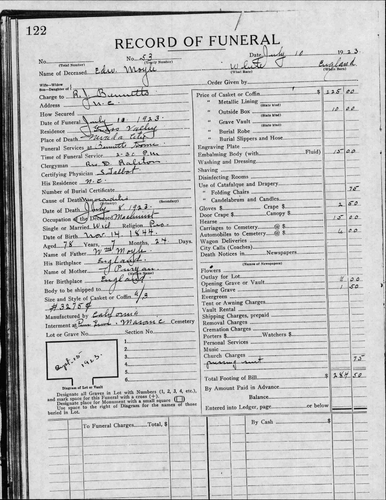 122
RECORD OF FUNERAL
No.
No. 53
Date, July 10 1923
(Total Number)
(Yearly Number)
Name of Deceased Edw Moyle
White
England
(What Race)
(Where Born)
Charge to R. J. Bennetts
Address N.C.
How Secured
Date of Funeral July 10 1923
Residence Grass Valley
Place of Death Nevada City
Funeral Services at Home
Time of Funeral Service 2:30 P.M.
Clergyman Rev. Ralston
Certifying Physician Talbot
His Residence N.C.
Number of Burial Certificate
Cause of Death
Date of Death July 8 1923
Occupation of the Deceased Machinist
Single or Married Wid Religion
Date of Birth Nov. 14 1844
Aged 78 Years 7 Months 24 Days
Name of Father Wm Moyle
His Birthplace England
Name of Mother
Her Birthplace England
Body to be shipped to
Size and Style of Casket or Coffin 6/2
Manufactured by
Interment at Masonic Cemetery
Lot or Grave No. Section No.
Diagram of Lot or Vault
Designate all Graves in Lot with Numbers (1, 2, 3, 4, etc.),
and mark space for this Funeral with a cross (+).
Designate place for Monument with a small square
Use space to the right of Diagram for the names of those
buried in Lot.
Order Given by
Price of Casket or Coffin $225 00
" Metallic Lining
" Outside Box 10 00
" Grave Vault
" Burial Robe
" Burial Slippers and Hose
Engraving Plate
Embalming Body (with Fluid) 15 00
Washing and Dressing
Shaving
Disinfecting Rooms
Use of Catafalque and Drapery
" Folding Chairs 75
" Candelabrum and Candles
Gloves $ Crape $ 2 50
Door Crape $ Canopy $
Hearse 15 00
Carriages to Cemetery @ $
Automobiles to Cemetery @ $ 4 00
Wagon Deliveries
City Calls (Coaches)
Death Notices in Newspapers
(Names of Newspapers)
Flowers
Outlay for Lot
Opening Grave or Vault 8 00
Lining Grave 1 50
Evergreen
Tent or Awning Charges
Vault Rental
Shipping Charges, prepaid
Removal Charges
Cremation Charges
Porters $ Watchers $
Personal Services
Music
Church Charges
Pressing suit 75
Total Footing of Bill $ 284 50
By Amount Paid in Advance
Balance
Entered into Ledger, page or below
To Funeral Charges, Total $
By Cash $